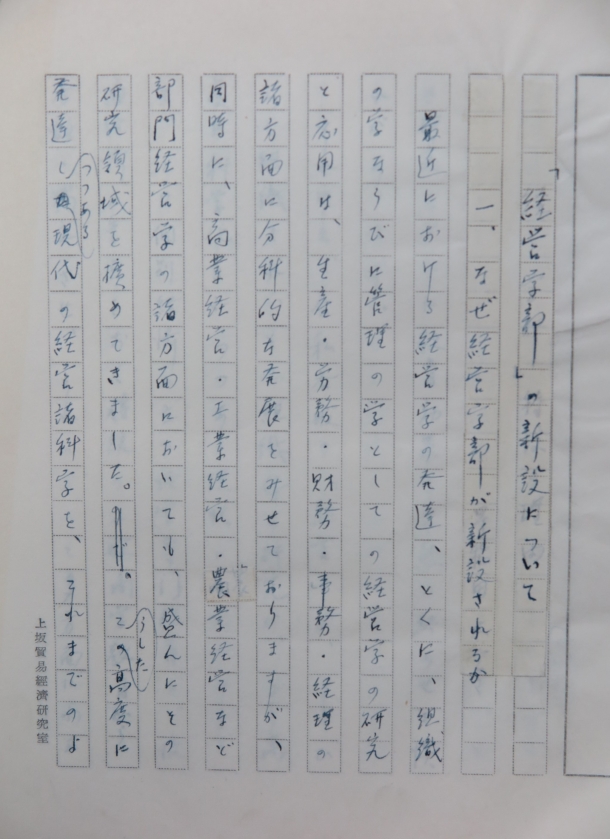 「経営学部」の新設について
一、なぜ経営学部が新設されるか
最近における経営学の発達、とくに、組織
の学ならびに管理の学としての経営学の研究
と応用は、生産・労務・財務・事務・経理の
諸方面に分科的な発展をみせておりますが、
同時に、商業経営・工業経営・農業経営など
部門経営学の諸方面においても、盛んにその
研究領域を擴めてきました。こうした高度に
発達しつつある現代の経営諸科学を、それまでのよ
上坂貿易經濟研究室